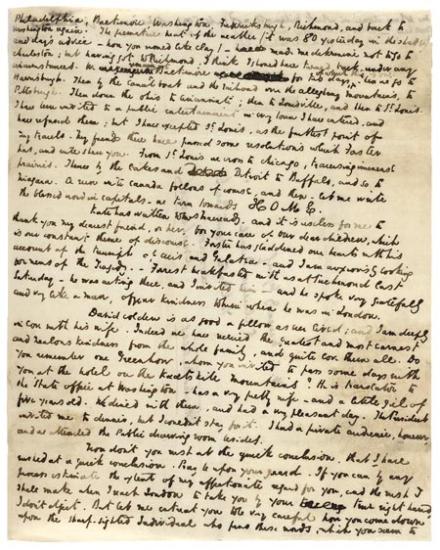 Philadelphia, Baltimore, Washington, Fredericksburgh, Richmond, and back to
Washington again. The premature heat of the weather (it was 80 yesterday in the shade)
and Clay's advice – how you would like Clay! – have made me determine not to go to
Charleston; but having got to Richmond, I think I should have turned back, under any
circumstances. We remain at Baltimore for two days, then go to
Harrisburgh. Then by the Canal boat and the Railroad over the alleghany mountains, to
Pittsburgh. Then down the Ohio to Cincinnati; then to Louisville, and then to St. Louis.
I have been invited to a public entertainment in every town I have entered, and
have refused them; but I have excepted St. Louis, as the farthest point of
my travels. My friends there have passed some resolutions which Forster
has, and will shew you. From St. Louis we cross to Chicago, traversing immense
prairies. Thence by the Lakes and Detroit to Buffalo, and so to
Niagara. A run into Canada follows of course, and then, let me write
the blessed word in capitals – we turn towards HOME.
Kate has written to Mrs. Macready, and it is useless for me to
thank you my dearest friend, or her, for your care of our dear children, which
is our constant theme of discourse. Forster has gladdened our hearts with his
account of the triumph of Acis and Galatea – and I am anxiously looking
for news of the Tragedy. Forrest breakfasted with us at Richmond last
Saturday – he was acting there, and I invited him – and he spoke very gratefully
and very like a man, of your kindness to him when he was in London.
David Colden is as good a fellow as ever lived; and I am deeply
in love with his wife. Indeed we have received the greatest and most earnest
and zealous kindness from the whole family, and quite love them all. Do
you remember one Greenhow, whom you invited to pass some days with
you at the hotel on the Kaatskill Mountains? He is translator to
the State office at Washington – has a very pretty wife – and a little girl of
five years old. We dined with them, and had a very pleasant day. The President
invited me to dinner, but I couldn't stay for it. I had a private audience, however,
and we attended the public drawing room besides.
Now don't you rush at the quick conclusion that I have
rushed at a quick conclusion. Pray be upon your guard. If you can by any
process estimate the extent of my affectionate regard for you, and the rush I
shall make when I reach London to take you by your true right hand,
I don't object. But let me entreat you to be very careful how you come down
upon the sharp-sighted Individual who pens these words, which you seem to